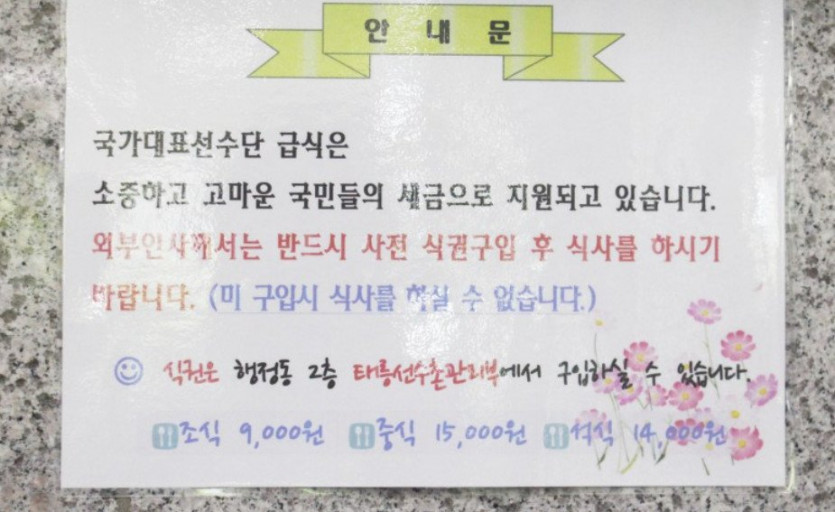 안 내 문
국가대표선수단 급식은
소중하고 고마운 국민들의 세금으로 지원되고 있습니다.
외부인사께서는 반드시 사전 식권구입 후 식사를 하시기
바랍니다. (미 구입시 식사를 하실 수 없습니다.)
식권은 행정동 2층 태릉선수촌관리부에서 구입하실 수 있습니다.
조식 9,000원 중식 15,000원 석식 14,000원